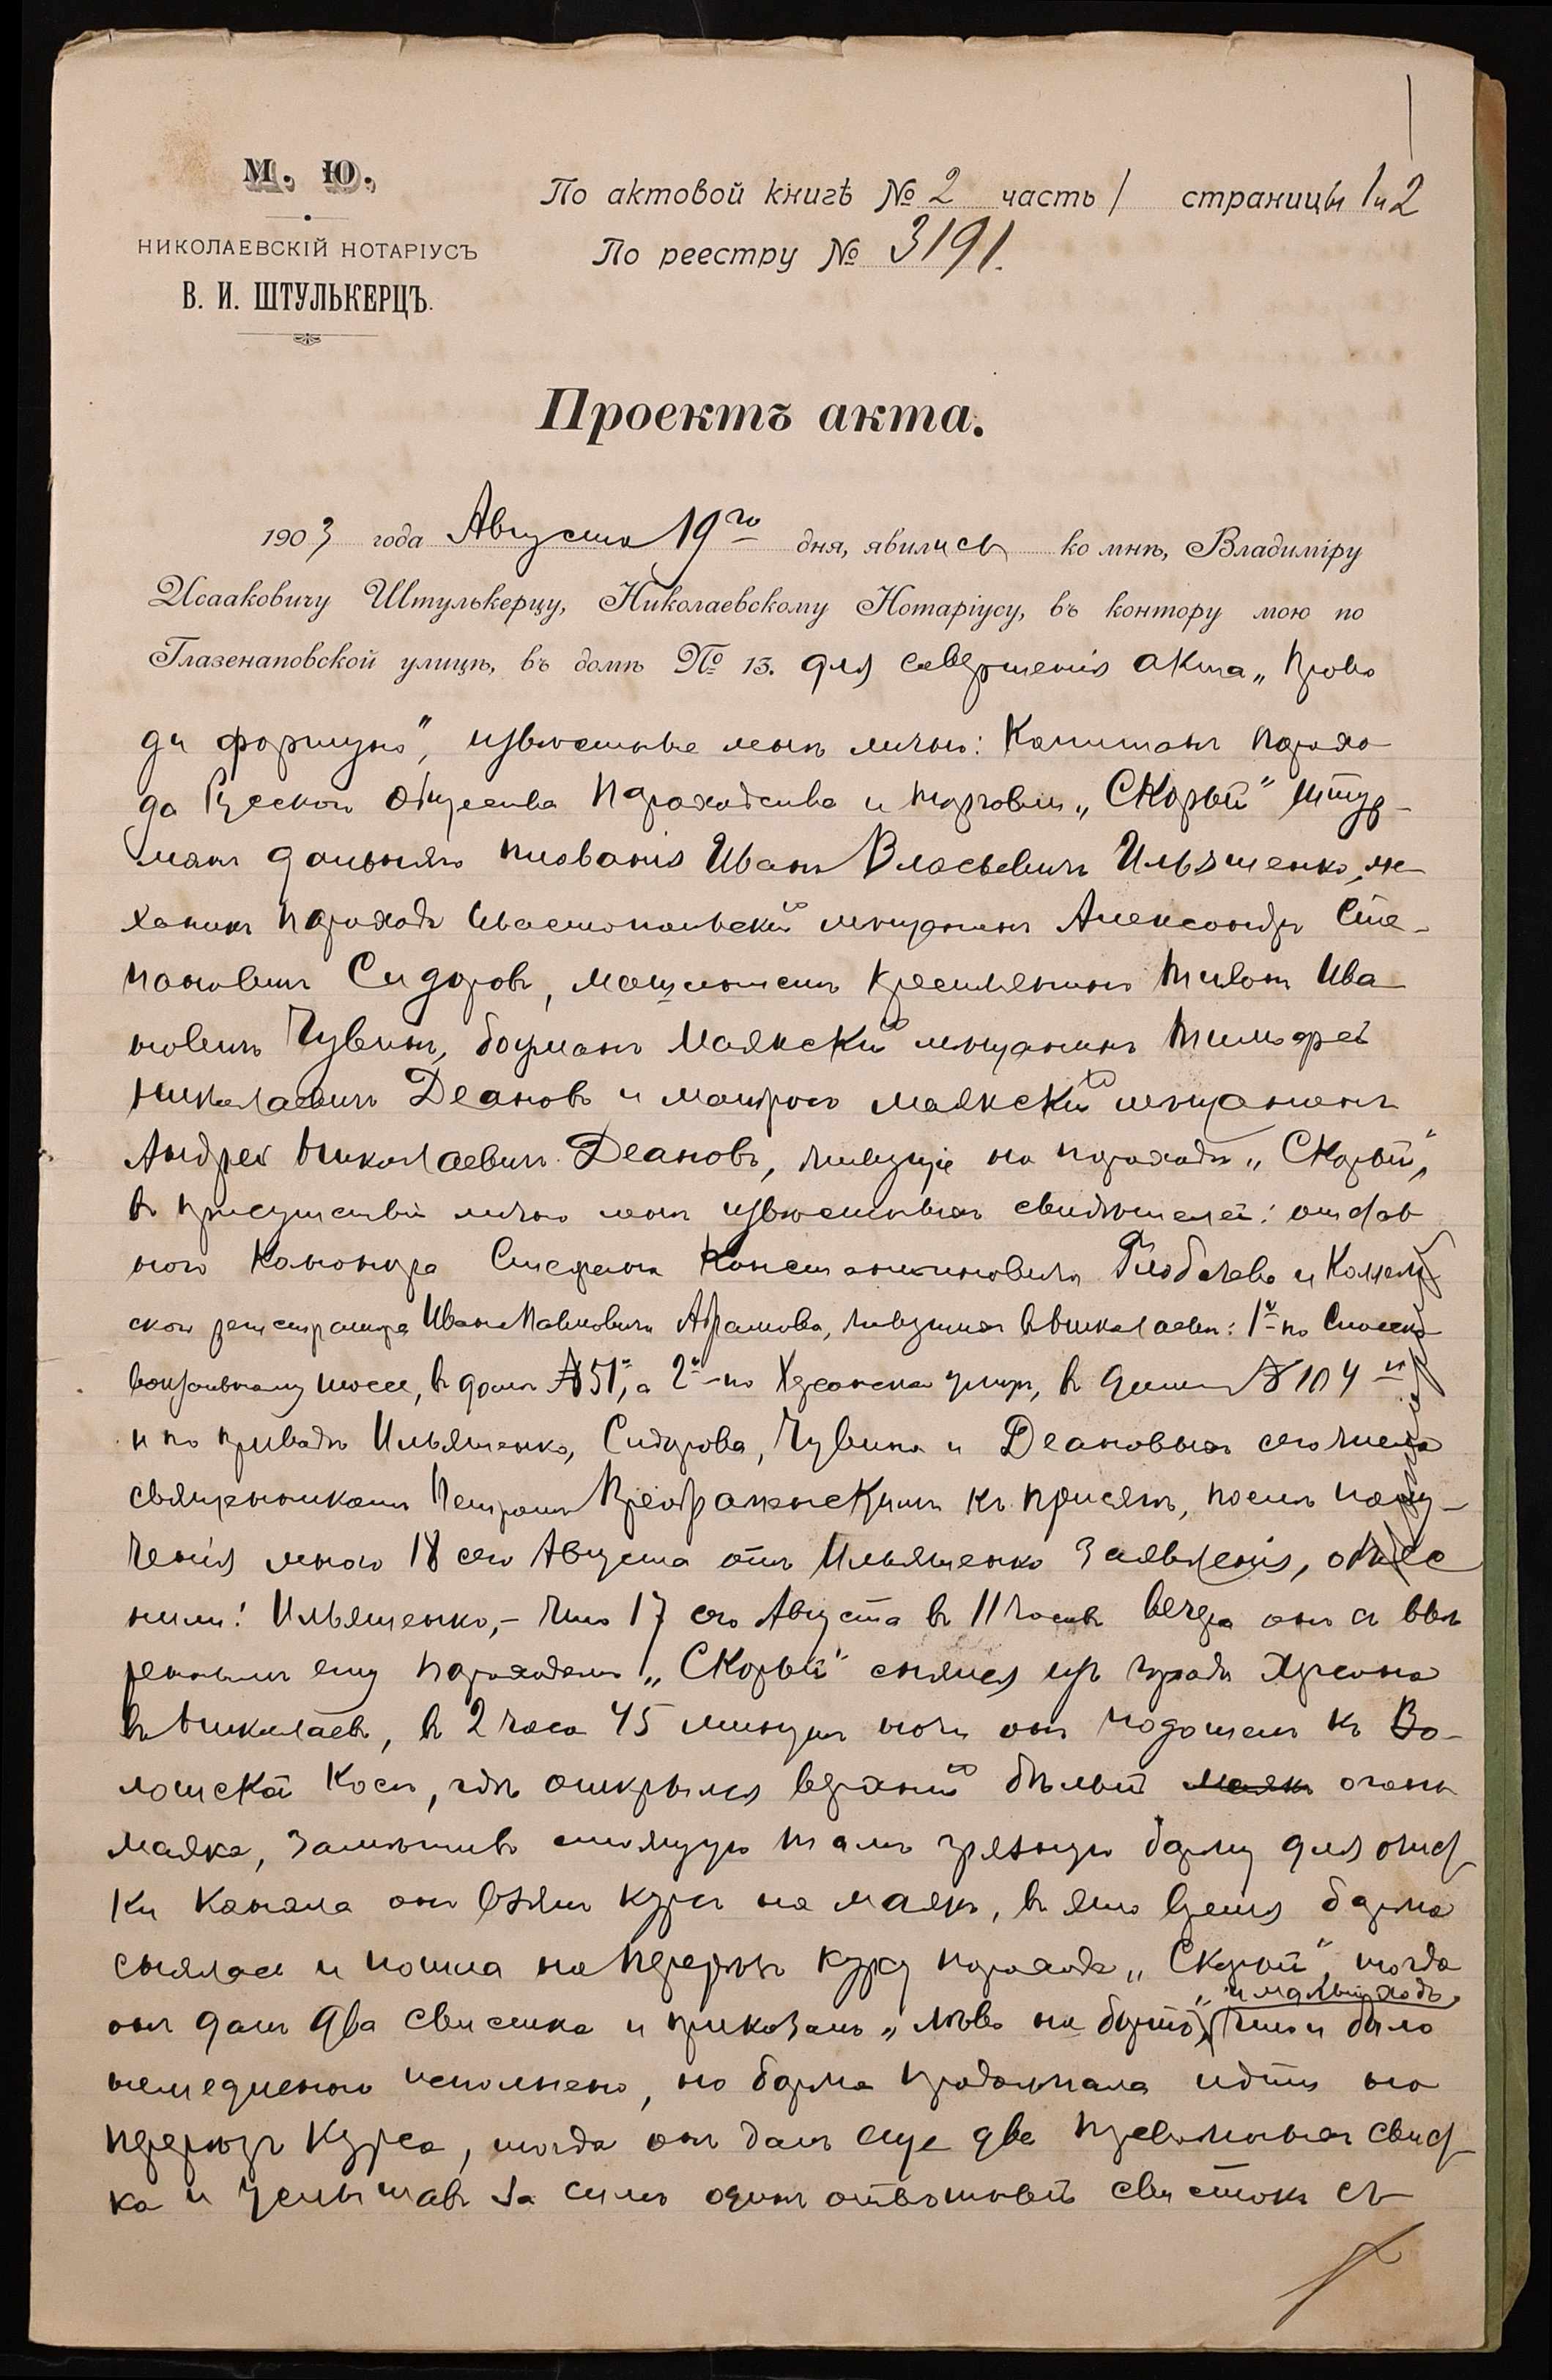 М. Ю.
НИКОЛАЕВСКІЙ НОТАРІУСЪ
В. И. ШТУЛЬКЕРЦЪ.
По актовой книгѣ № 2 часть 1 страницы 1 и 2
По реестру № 3191.
Проектъ акта.
1903 года Августа 19го дня, явились ко мнѣ, Владиміру
Исааковичу Штулькерцу, Николаевскому Нотаріусу, въ контору мою по
Глазенаповской улицѣ, въ домѣ № 13. для совершенія акта „Прово
ди фортуно", извѣстные мнѣ лично: Капитанъ парохо
да Русскаго Общества Пароходства и торговли „Скорый" штур-
манъ дальняго плаванія Иванъ Власьевичъ Ильяшенко, ме
ханикъ парохода Севастопольскій мѣщанинъ Александръ Сте-
пановичъ Сидоровъ, машинистъ крестьянинъ Ива
новичъ Чувинъ, боцманъ Маякскій мѣщанинъ Тимофей
Николаевичъ Деановъ и матросъ маякскій мѣщанинъ
Андрей Николаевичъ Деановъ, живущіе на пароходѣ „Скорый",
въ присутствіи лично мнѣ извѣстныхъ свидѣтелей: отстав
ного Канонира Стефана Константиновича и Коллеж
скаго регистратора Ивана Павловича Абрамова, живущихъ въ Николаевѣ: 1й по
вокзальному шоссе, въ домѣ № 51, а 2й по Херсонской улицѣ, въ домѣ № 104
и по приводѣ Ильяшенко, Сидорова, Чувина и Деановыхъ сего числа
священникомъ Петромъ Преображенскимъ къ присягѣ, послѣ полу-
ченія мною 18 сего Августа отъ Ильяшенко заявленія, объяс
нили: Ильяшенко, - что 17 сего Августа въ 11 часовъ вечера онъ съ ввѣ
реннымъ ему пароходомъ „Скорый" снялся изъ города Херсона
въ Николаевъ, въ 2 часа 45 минутъ ночи онъ подошелъ къ Во-
лошской Косѣ, гдѣ открылся верхній бѣлый маякъ огонь
маяка, замѣтивъ стоящую тамъ грязную баржу для очист
ки канала онъ взялъ курсъ на маякъ, въ это время баржа
снялась и пошла на перерѣзъ курсу парохода „Скорый", тогда
„и малый ходъ"
онъ далъ два свистка и приказалъ „лѣво на бортъ", что и было
немедленно исполнено, но баржа продолжала идти на
перерѣзъ курса, тогда онъ далъ еще два тревожныхъ свист
ка и услышавъ за симъ одинъ отвѣтный свистокъ съ